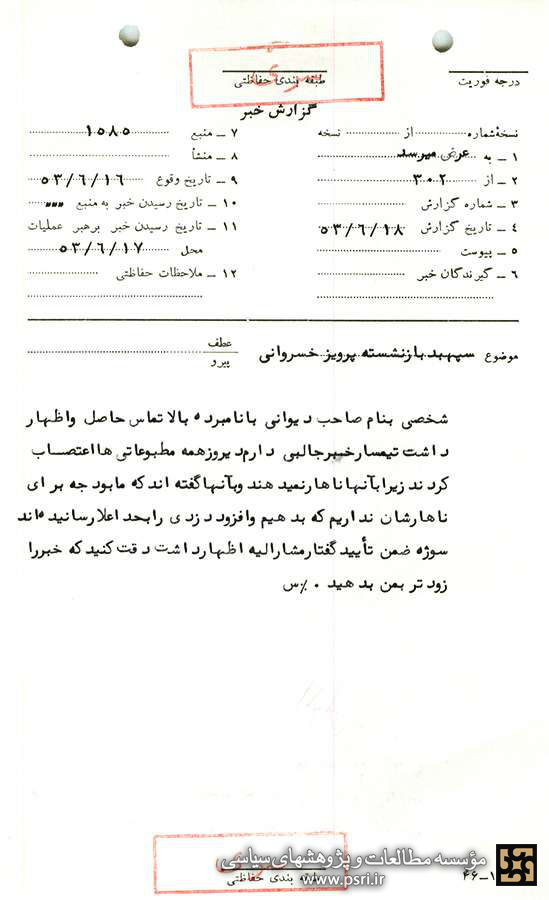 درجه فوریت
سری
طبقه بندی حفاظتی
گزارش خبر
نسخهٔ شماره ........ از ........ نسخه
۱ ــ به عرض میرسد
۲ ــ از ۳۰۲
۳ ــ شماره گزارش
۴ ــ تاریخ گزارش ۵۳/۶/۱۸
۵ ــ پیوست
۶ ــ گیرندگان خبر
۷ ــ منبع ۱۵۸۵
۸ ــ منشأ
۹ ــ تاریخ وقوع ۵۳/۶/۱۶
۱۰ ــ تاریخ رسیدن خبر به منبع 〃〃〃
۱۱ ــ تاریخ رسیدن خبر برهبر عملیات
محل ۵۳/۶/۱۷
۱۲ ــ ملاحظات حفاظتی
موضوع سپهبد بازنشسته پرویز خسروانی
عطف
پیرو
شخصی بنام صاحب دیوانی با نامبرده بالا تماس حاصل و اظهار
داشت تیمسار خبر جالبی دارم دیروز همه مطبوعاتی ها اعتصاب
کردند زیرا بآنها ناهار نمیدهند و بآنها گفته اند که ما بودجه برای
ناهارشان نداریم که بدهیم و افزود دزدی را بحد اعلا رسانیده اند
سوژه ضمن تأیید گفتار مشارالیه اظهار داشت دقت کنید که خبر را
زودتر بمن بدهید ۰ ٪س
مؤسسه مطالعات و پژوهشهای سیاسی
www.psri.ir
طبقه بندی حفاظتی
۴۶-۱